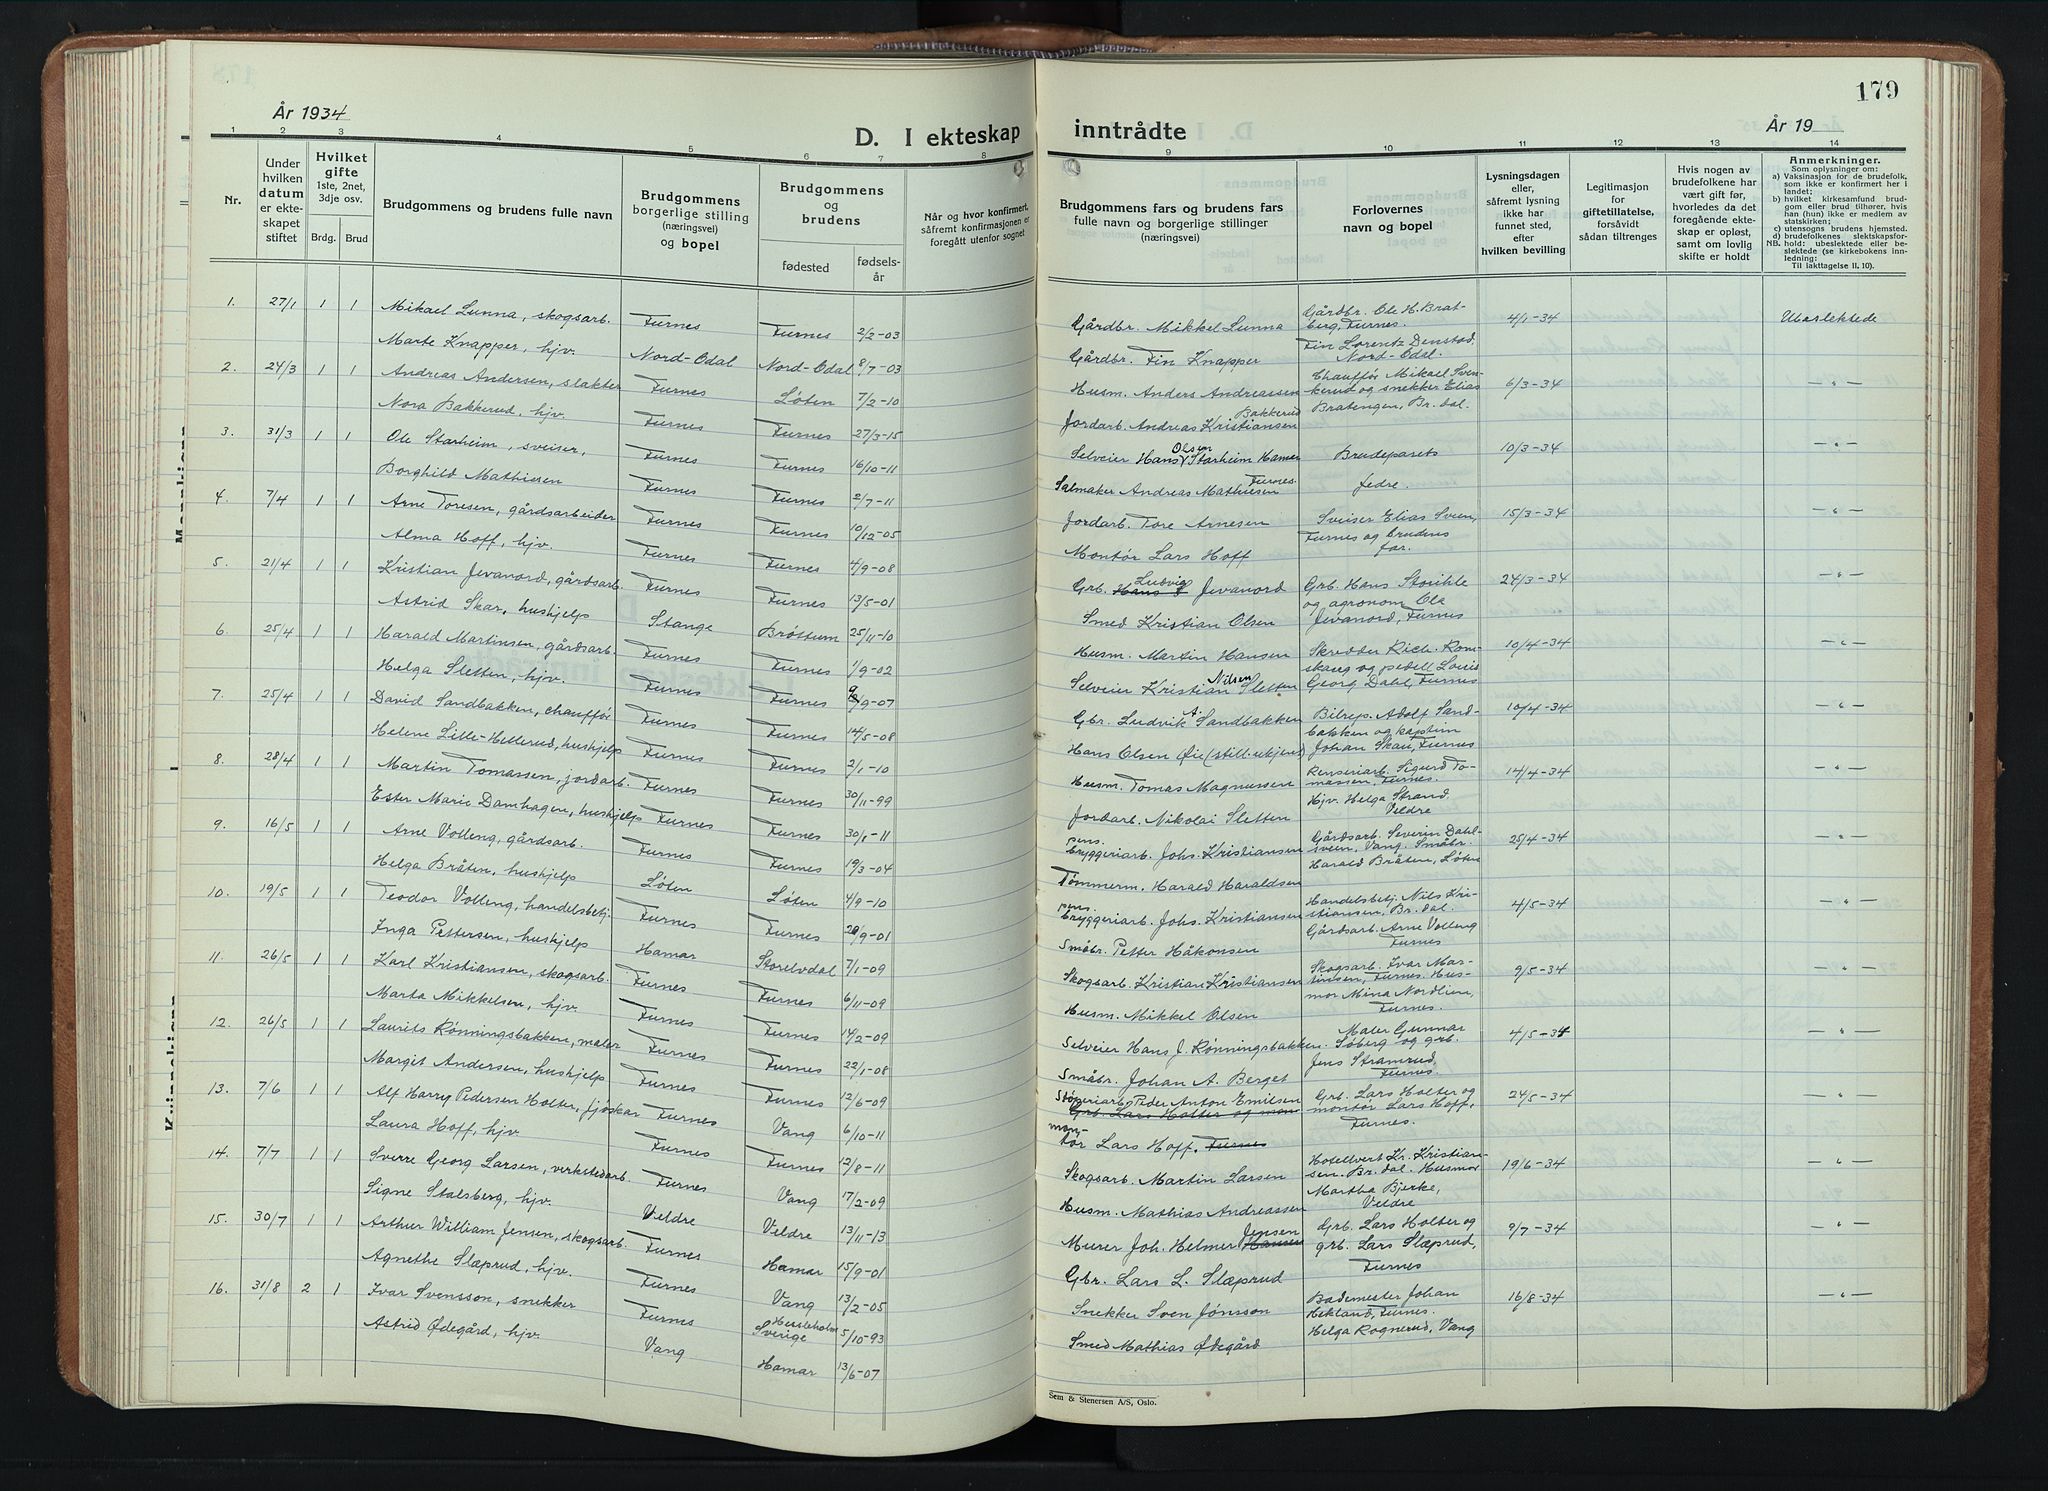 År 1934
D. I ekteskap
1 2 3 4 5 6 7 8
Nr.
Under hvilken datum er ekteskapet stiftet
Hvilket gifte 1ste, 2net, 3dje osv.
Brdg. Brud
Brudgommens og brudens fulle navn
Brudgommens borgerlige stilling (næringsvei) og bopel
Brudgommens og brudens
fødested
fødsels-år
Når og hvor konfirmert, såfremt konfirmasjonen er foregått utenfor sognet
1. 27/1 1 1 Mikael Lunna, skogsarb. Furnes Furnes 2/2-03
Marte Knapper, hjv. Nord-Odal Nord-Odal 8/7-03
2. 24/3 1 1 Andreas Andersen, slakter Furnes Løten 7/2-10
Nora Bakkerud, hjv. Furnes Furnes 27/3-15
3. 31/3 1 1 Ole Starheim, sveiser, Furnes Furnes 16/10-11
Borghild Mathiesen Furnes Furnes 2/7-11
4. 7/4 1 1 Arne Toresen, gårdsarbeider Furnes Furnes 10/12-05
Alma Hoff, hjv. Furnes Furnes 4/9-08
5. 21/4 1 1 Kristian Jevanord, gårdsarb. Furnes Furnes 13/5-01
Astrid Skar, hushjelp Stange Brøttum 25/11-10
6. 25/4 1 1 Harald Martinsen, gårdsarb. Furnes Furnes 1/9-02
Helga Sletten, hjv. Furnes Furnes 9/9-07
7. 25/4 1 1 David Sandbakken, chauffør Furnes Furnes 14/5-08
Helene Lille-Hellerud, hushjelp Furnes Furnes 2/1-10
8. 28/4 1 1 Martin Tomassen, jordarb. Furnes Furnes 30/11-99
Ester Marie Damhagen, hushjelp Furnes Furnes 30/1-11
9. 16/5 1 1 Arne Volleng, gårdsarb. Furnes Furnes 19/3-04
Helga Bråten, hushjelp Løten Løten 4/9-10
10. 19/5 1 1 Teodor Volleng, handelsbetj. Furnes Furnes 29/9-01
Inga Pettersen, hushjelp Hamar Storelvdal 7/1-09
11. 26/5 1 1 Karl Kristiansen, skogsarb. Furnes Furnes 6/11-09
Marta Mikkelsen, hjv. Furnes Furnes 14/2-09
12. 26/5 1 1 Laurits Rønningsbakken, maler Furnes Furnes 22/1-08
Margit Andersen, hushjelp Furnes Furnes 12/6-09
13. 7/6 1 1 Alf Harry Pedersen Holter, fjøskar Furnes Vang 6/10-11
Laura Hoff, hjv. Furnes Furnes 12/8-11
14. 7/7 1 1 Sverre Georg Larsen, verkstedarb. Furnes Vang 17/2-09
Signe Stalsberg, hjv. Veldre Veldre 13/11-13
15. 30/7 1 1 Arthur William Jensen, skogsarb. Furnes Hamar 15/9-01
Agnethe Slæprud, hjv. Furnes Vang 13/2-05
16. 31/8 2 1 Ivar Svensson, snekker Furnes Hessleholm Sverige 5/10-93
Astrid Ødegård, hjv. Vang Hamar 13/6-07
179
inntrådte
År 19
9 10 11 12 13 14
Brudgommens fars og brudens fars fulle navn og borgerlige stillinger (næringsvei)
Forlovernes navn og bopel
Lysningsdagen eller, såfremt lysning ikke har funnet sted, efter hvilken bevilling
Legitimasjon for giftetillatelse, forsåvidt sådan tiltrenges
Hvis nogen av brudefolkene har vært gift før, hvorledes da det foregående ekteskap er opløst, samt om lovlig skifte er holdt
Anmerkninger.
Som oplysninger om:
a) Vaksinasjon for de brudefolk, som ikke er konfirmert her i landet;
b) hvilket kirkesamfund brudgom eller brud tilhører, hvis han (hun) ikke er medlem av statskirken;
c) utensogns brudens hjemsted.
d) brudefolkenes slektskapsforhold: ubeslektede eller beslektede (se kirkebokens innledning:
NB.
Til iakttagelse II, 10).
Gårdbr. Mikkel Lunna Gårdbr. Ole H. Bratberg, Furnes. 4/1-34 Ubeslektede
Gårdbr. Fin Knapper Fin Lorentz Denstad, Nord-Odal.
Husm. Anders Andreassen Chauffør Mikael Svenkerud og snekker Elias 6/3-34 -"-
Jordarb. Andreas Kristiansen Bakkerud Bratengen, Br.dal.
Selveier Hans Olsen Starheim Hamar Brudeparets 10/3-34 -"-
Salmaker Andreas Mathiesen Furnes fedre.
Jordarb. Tore Arnesen Sveiser Elias Sveen, 15/3-34 -"-
Montør Lars Hoff Furnes og brudens far.
Grb. Hans Ludvig Jevanord Grb. Hans Storihle 24/3-34 -"-
Smed Kristian Olsen og agronom Ole Jevanord, Furnes
Husm. Martin Hansen Skredder Rich. Romskaug og pedell Louis 10/4-34 -"-
Selveier Kristian Nilsen Sletten Georg Dahl, Furnes
Gbr. Ludvik A. Sandbakken Bilrep. Adolf Sandbakken og kaptein 10/4-34 -"-
Hans Olsen Øie (still. ukjent) Johan Skau, Furnes
Husm. Tomas Magnussen Renseriarb. Sigurd Tomassen, Furnes. 14/4-34 -"-
Jordarb. Nikolai Sletten Hjv. Helga Strand Veldre
pens. bryggeriarb. Johs. Kristiansen Gårdsarb. Severin Dahlsveen, Vang. Småbr. 25/4-34 -"-
Tømmerm. Harald Haraldsen Harald Bråten, Løten
pens. bryggeriarb. Johs. Kristiansen Handelsbetj. Nils Kristiansen, Br.dal. 4/5-34 -"-
Småbr. Petter Håkonsen Gårdsarb. Arne Volleng Furnes
Skogsarb. Kristian Kristiansen Skogsarb. Ivar Martinsen, Furnes. Husmor Mina Nordlien, 9/5-34 -"-
Husm. Mikkel Olsen Furnes.
Selveier Hans J. Rønningsbakken. Maler Gunnar Søberg og grb. 4/5-34 -"-
Småbr. Johan A. Berget Jens Stramrud, Furnes.
Støperiarb. Peder Anton Emilsen Grb. Lars Holter og mon Grb. Lars Holter og montør Lars Hoff, 24/5-34 -"-
montør Lars Hoff, Furnes Furnes.
Skogsarb. Martin Larsen Hotellvert Kr. Kristiansen. Br.dal. Husmor 19/6-34 -"-
Husm. Mathias Andreassen Martha Bjerke, Veldre
Murer Joh. Helmer Hansen Jensen Grb. Lars Holter og 9/7-34 -"-
Gbr. Lars L. Slæprud grb. Lars Slæprud, Furnes
Snekker Sven Jønsson Bademester Johan Hekland, Furnes. 16/8-34 -"-
Smed Mathias Ødegård Helga Rognerud, Vang
Sem & Stenersen A/S, Oslo.